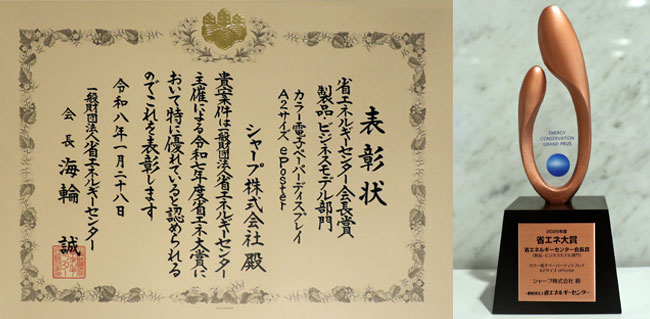 表彰状
省エネルギーセンター会長賞
製品・ビジネスモデル部門
カラー電子ペーパーディスプレイ
A2サイズ ePoster
シャープ株式会社 殿
貴案件は一般財団法人省エネルギーセンター
主催による令和七年度省エネ大賞に
おいて特に優れていると認められる
のでこれを表彰します
令和八年一月二十八日
一般財団法人省エネルギーセンター
会長 海輪 誠
ENERGY
CONSERVATION
GRAND PRIZE
2025年度
省エネ大賞
省エネルギーセンター会長賞
(製品・ビジネスモデル部門)
カラー電子ペーパーディスプレイ
A2サイズ ePoster
シャープ株式会社 殿
一般財団法人 省エネルギーセンター